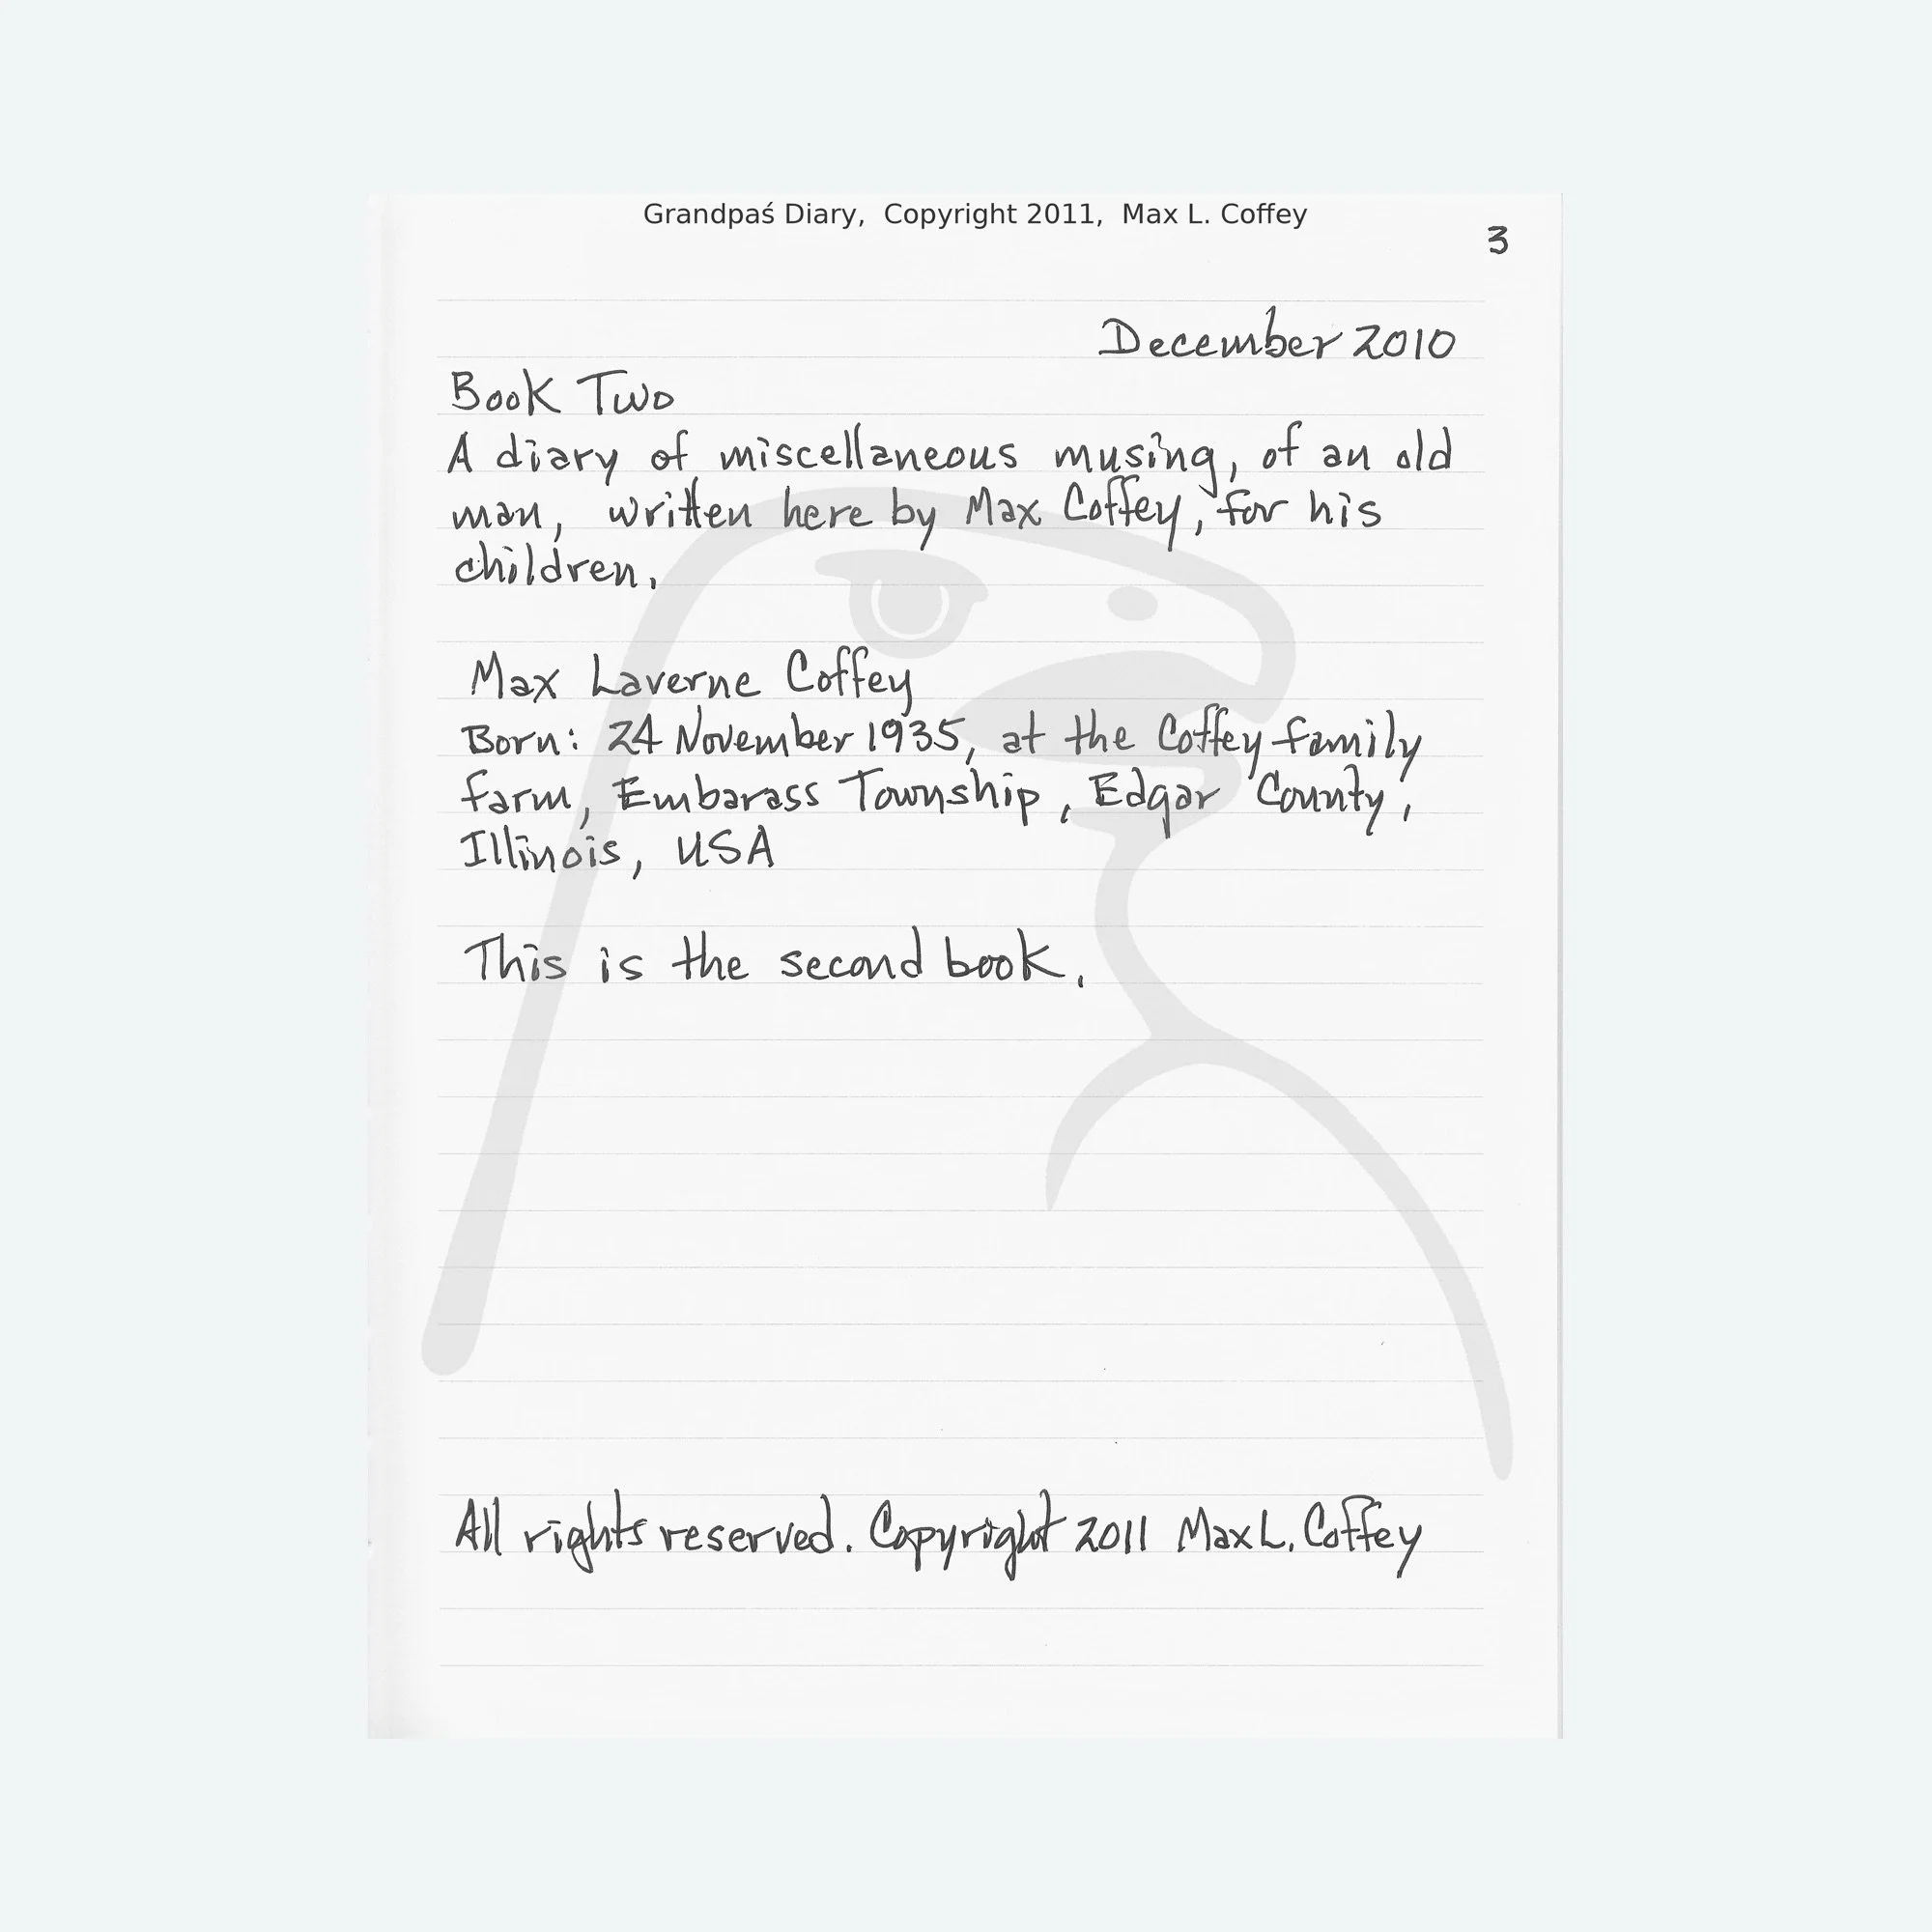 Grandpaś Diary,  Copyright 2011,  Max L. Coffey
3
December 2010
Book Two
A diary of miscellaneous musing, of an old
man, written here by Max Coffey, for his
children.
Max Laverne Coffey
Born: 24 November 1935, at the Coffey family
farm, Embarass Township, Edgar County,
Illinois, USA
This is the second book.
All rights reserved. Copyright 2011 Max L. Coffey